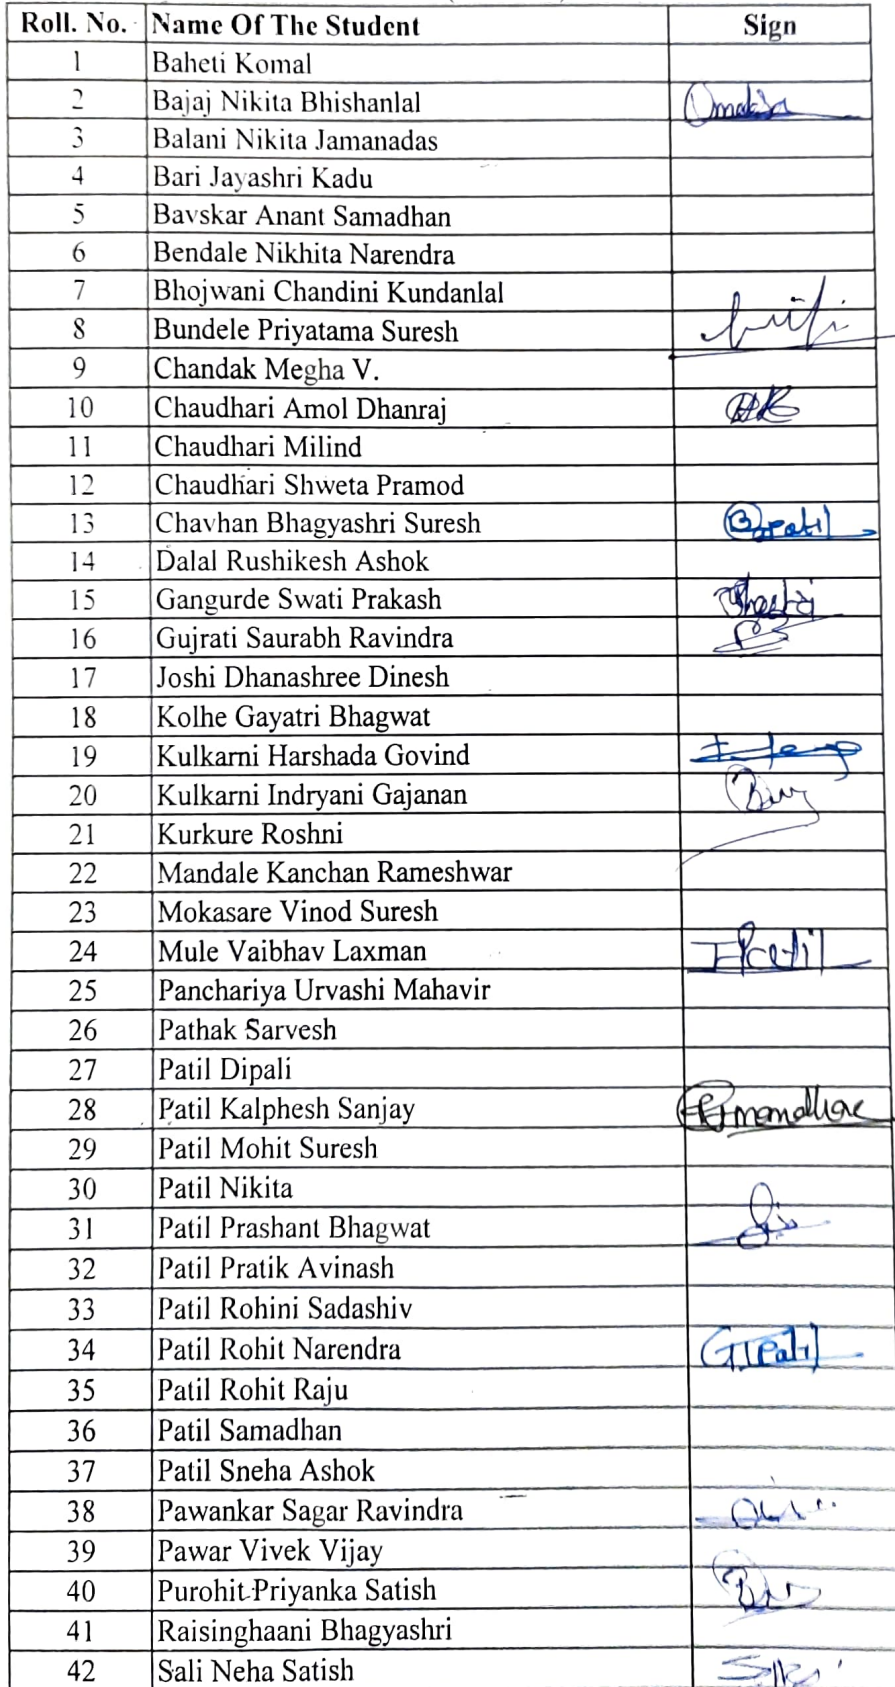 Roll. No. Name Of The Student Sign
1 Baheti Komal
2 Bajaj Nikita Bhishanlal
3 Balani Nikita Jamanadas
4 Bari Jayashri Kadu
5 Bavskar Anant Samadhan
6 Bendale Nikhita Narendra
7 Bhojwani Chandini Kundanlal
8 Bundele Priyatama Suresh
9 Chandak Megha V.
10 Chaudhari Amol Dhanraj
11 Chaudhari Milind
12 Chaudhari Shweta Pramod
13 Chavhan Bhagyashri Suresh
14 Dalal Rushikesh Ashok
15 Gangurde Swati Prakash
16 Gujrati Saurabh Ravindra
17 Joshi Dhanashree Dinesh
18 Kolhe Gayatri Bhagwat
19 Kulkarni Harshada Govind
20 Kulkarni Indryani Gajanan
21 Kurkure Roshni
22 Mandale Kanchan Rameshwar
23 Mokasare Vinod Suresh
24 Mule Vaibhav Laxman
25 Panchariya Urvashi Mahavir
26 Pathak Sarvesh
27 Patil Dipali
28 Patil Kalphesh Sanjay
29 Patil Mohit Suresh
30 Patil Nikita
31 Patil Prashant Bhagwat
32 Patil Pratik Avinash
33 Patil Rohini Sadashiv
34 Patil Rohit Narendra
35 Patil Rohit Raju
36 Patil Samadhan
37 Patil Sneha Ashok
38 Pawankar Sagar Ravindra
39 Pawar Vivek Vijay
40 Purohit Priyanka Satish
41 Raisinghaani Bhagyashri
42 Sali Neha Satish